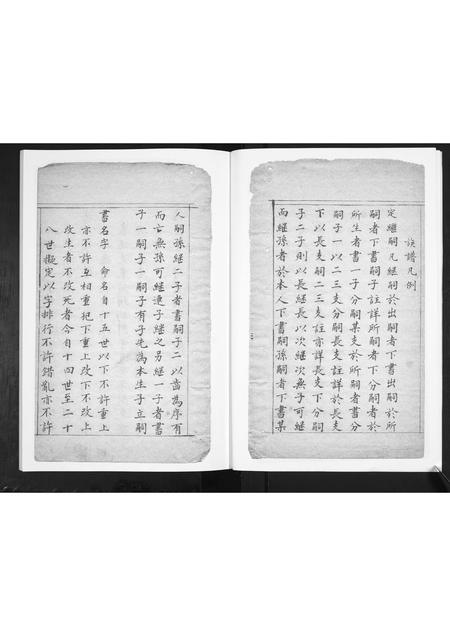 族譜凡例
定繼嗣凡繼嗣於出嗣者下書出嗣於所
嗣者下書嗣子註詳所嗣者下分嗣者於
所生者書一子分嗣某支於所嗣者書分
嗣子一以二三支分嗣長支註詳於長支
下以長支嗣二三支註亦詳長支下分嗣
子二子則以長繼長以次繼次無子可繼
而繼孫者於本人下書嗣孫嗣者下書某
人嗣孫繼二子者書嗣子二以齒為序有
而言無孫可繼連子繼之另繼一子者書
子一嗣子一嗣子有子先為本生子立嗣
書名字 命名自十五世以下不許重上
亦不許互相重犯下重上改下不改上
改生者不改死者今自十四世至二十
八世擬定以字排行不許錯亂亦不許